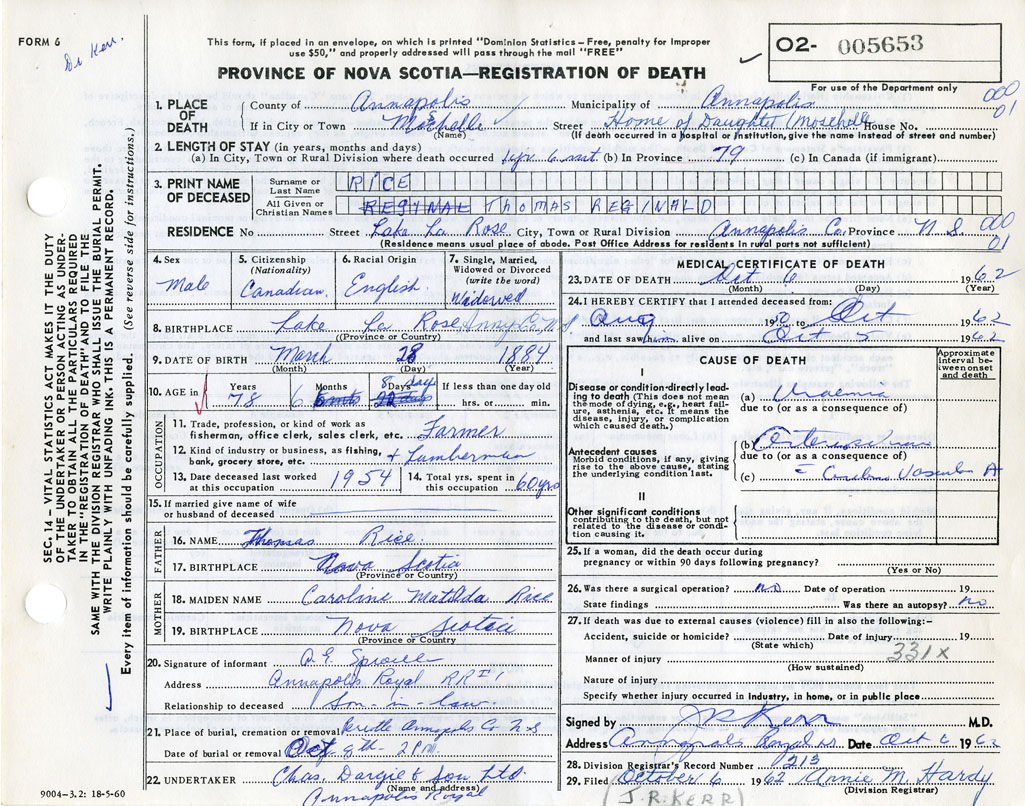 FORM 6
Dr Kerr.
This form, if placed in an envelope, on which is printed "Dominion Statistics – Free, penalty for improper
use $50," and properly addressed will pass through the mail "FREE"
PROVINCE OF NOVA SCOTIA—REGISTRATION OF DEATH
O2- 005653
For use of the Department only
1. PLACE OF DEATH County of Annapolis Municipality of Annapolis 000 01
If in City or Town (Name) Street Home of Daughter House No.
(If death occurred in a hospital or institution, give the name instead of street and number)
2. LENGTH OF STAY (in years, months and days)
(a) In City, Town or Rural Division where death occurred 1yr 6 mt (b) In Province 79 (c) In Canada (if immigrant)
3. PRINT NAME OF DECEASED Surname or Last Name RICE
All Given or Christian Names REGINAL THOMAS REGINALD
RESIDENCE No Street Lake La Rose City, Town or Rural Division Annapolis Co. Province N S 000 01
(Residence means usual place of abode. Post Office Address for residents in rural parts not sufficient)
4. Sex Male
5. Citizenship (Nationality) Canadian
6. Racial Origin English
7. Single, Married, Widowed or Divorced (write the word) Widowed
8. BIRTHPLACE Lake La Rose Anna Co. N.S.
(Province or Country)
9. DATE OF BIRTH March 28 1884
(Month) (Day) (Year)
10. AGE in Years 78 Months 6 Days 8 days If less than one day old hrs. or min.
OCCUPATION
11. Trade, profession, or kind of work as fisherman, office clerk, sales clerk, etc. Farmer
12. Kind of industry or business, as fishing, bank, grocery store, etc. + Lumberman
13. Date deceased last worked at this occupation 1954
14. Total yrs. spent in this occupation 60 yrs
15. If married give name of wife or husband of deceased
FATHER
16. NAME Thomas Rice
17. BIRTHPLACE Nova Scotia
(Province or Country)
MOTHER
18. MAIDEN NAME Caroline Matilda Rice
19. BIRTHPLACE Nova Scotia
(Province or Country
20. Signature of informant
Address Annapolis Royal RR#1
Relationship to deceased Son-in-law
21. Place of burial, cremation or removal Annapolis Co N S
Date of burial or removal Oct 9th - 2 PM.
22. UNDERTAKER Chas. Dargie & Son Ltd.
(Name and address)
Annapolis Royal
9004-3.2: 18-5-60
MEDICAL CERTIFICATE OF DEATH
23. DATE OF DEATH Oct 6 1962
(Month) (Day) (Year)
24. I HEREBY CERTIFY that I attended deceased from:
Aug 19 to Oct 1962
and last saw him alive on Oct 5 1962
CAUSE OF DEATH
Approximate interval between onset and death
I
Disease or condition directly leading to death (This does not mean the mode of dying, e.g., heart failure, asthenia, etc. It means the disease, injury, or complication which caused death.)
(a) Uraemia
due to (or as a consequence of)
Antecedent causes
Morbid conditions, if any, giving rise to the above cause, stating the underlying condition last.
(b)
due to (or as a consequence of)
(c) Cerebro Vascular A
II
Other significant conditions
contributing to the death, but not related to the disease or condition causing it.
25. If a woman, did the death occur during pregnancy or within 90 days following pregnancy?
(Yes or No)
26. Was there a surgical operation? no Date of operation 19
State findings Was there an autopsy? no
27. If death was due to external causes (violence) fill in also the following:–
Accident, suicide or homicide? Date of injury 19
(State which)
331X
Manner of injury
(How sustained)
Nature of injury
Specify whether injury occurred in industry, in home, or in public place
Signed by J R Kerr M.D.
Address Annapolis Royal NS Date Oct 6 1962
28. Division Registrar's Record Number 213
29. Filed October 6 1962 Annie M. Hardy
(Division Registrar)
(J.R. KERR)
SEC. 14 – VITAL STATISTICS ACT MAKES IT THE DUTY
OF THE UNDERTAKER OR PERSON ACTING AS UNDER-
TAKER TO OBTAIN ALL THE PARTICULARS REQUIRED
IN THE "REGISTRATION OF DEATH" AND TO FILE THE
SAME WITH THE DIVISION REGISTRAR WHO SHALL ISSUE THE BURIAL PERMIT.
WRITE PLAINLY WITH UNFADING INK. THIS IS A PERMANENT RECORD.
Every item of information should be carefully supplied. (See reverse side for instructions.)